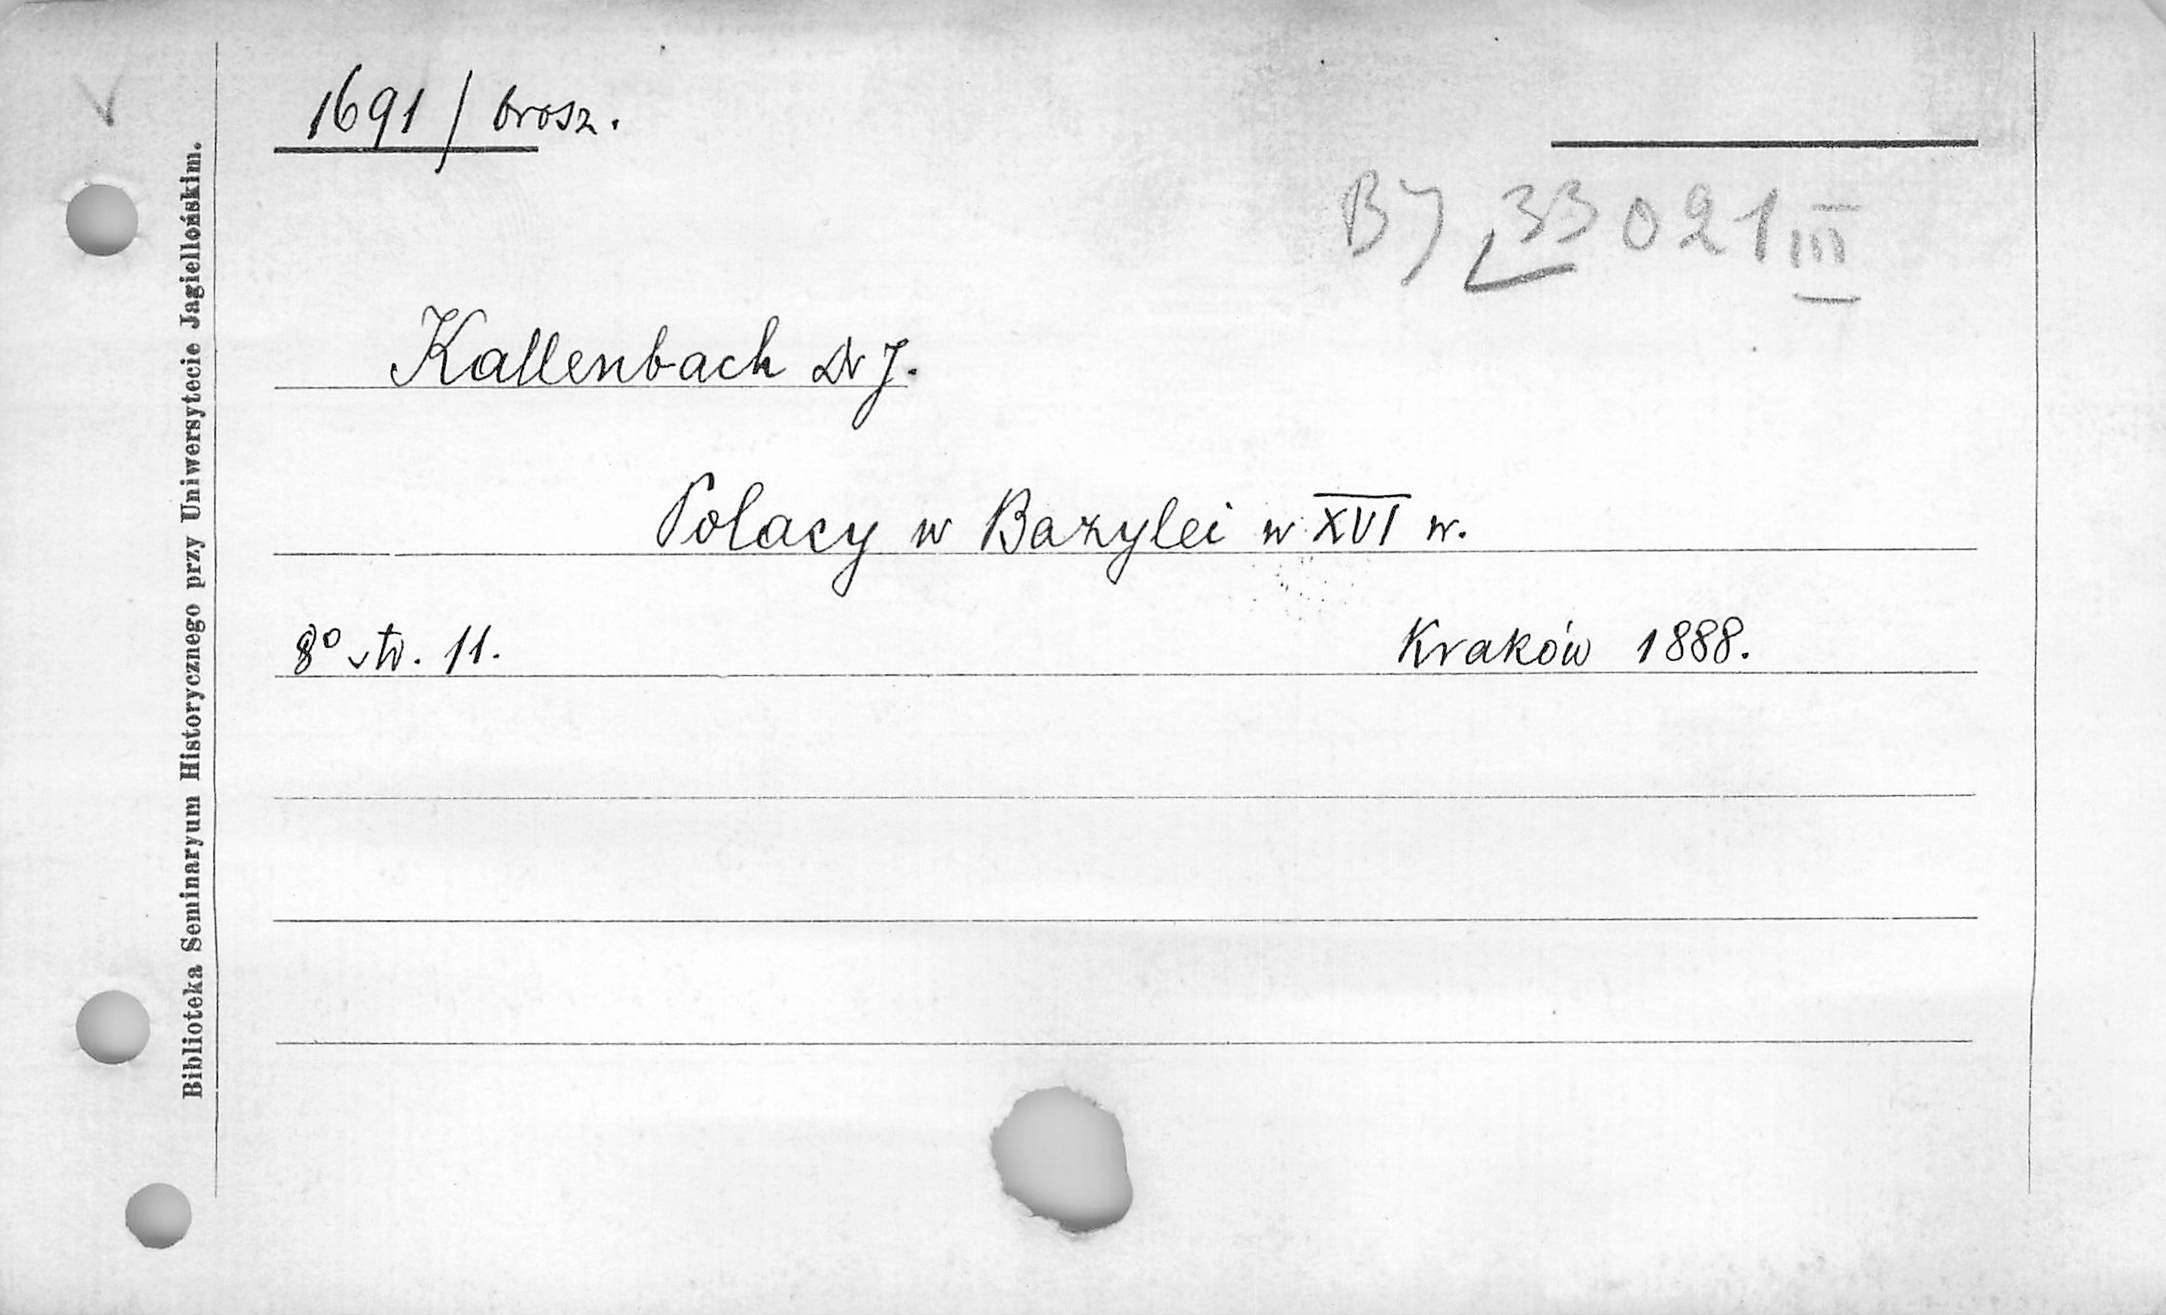 1691 / brosz.
BJ 33 021 III
Kallenbach Dr J.
Polacy w Bazylei w XVI w.
8° str. 11.
Kraków 1888.
Biblioteka Seminaryum Historycznego przy Uniwersytecie Jagiellońskim.